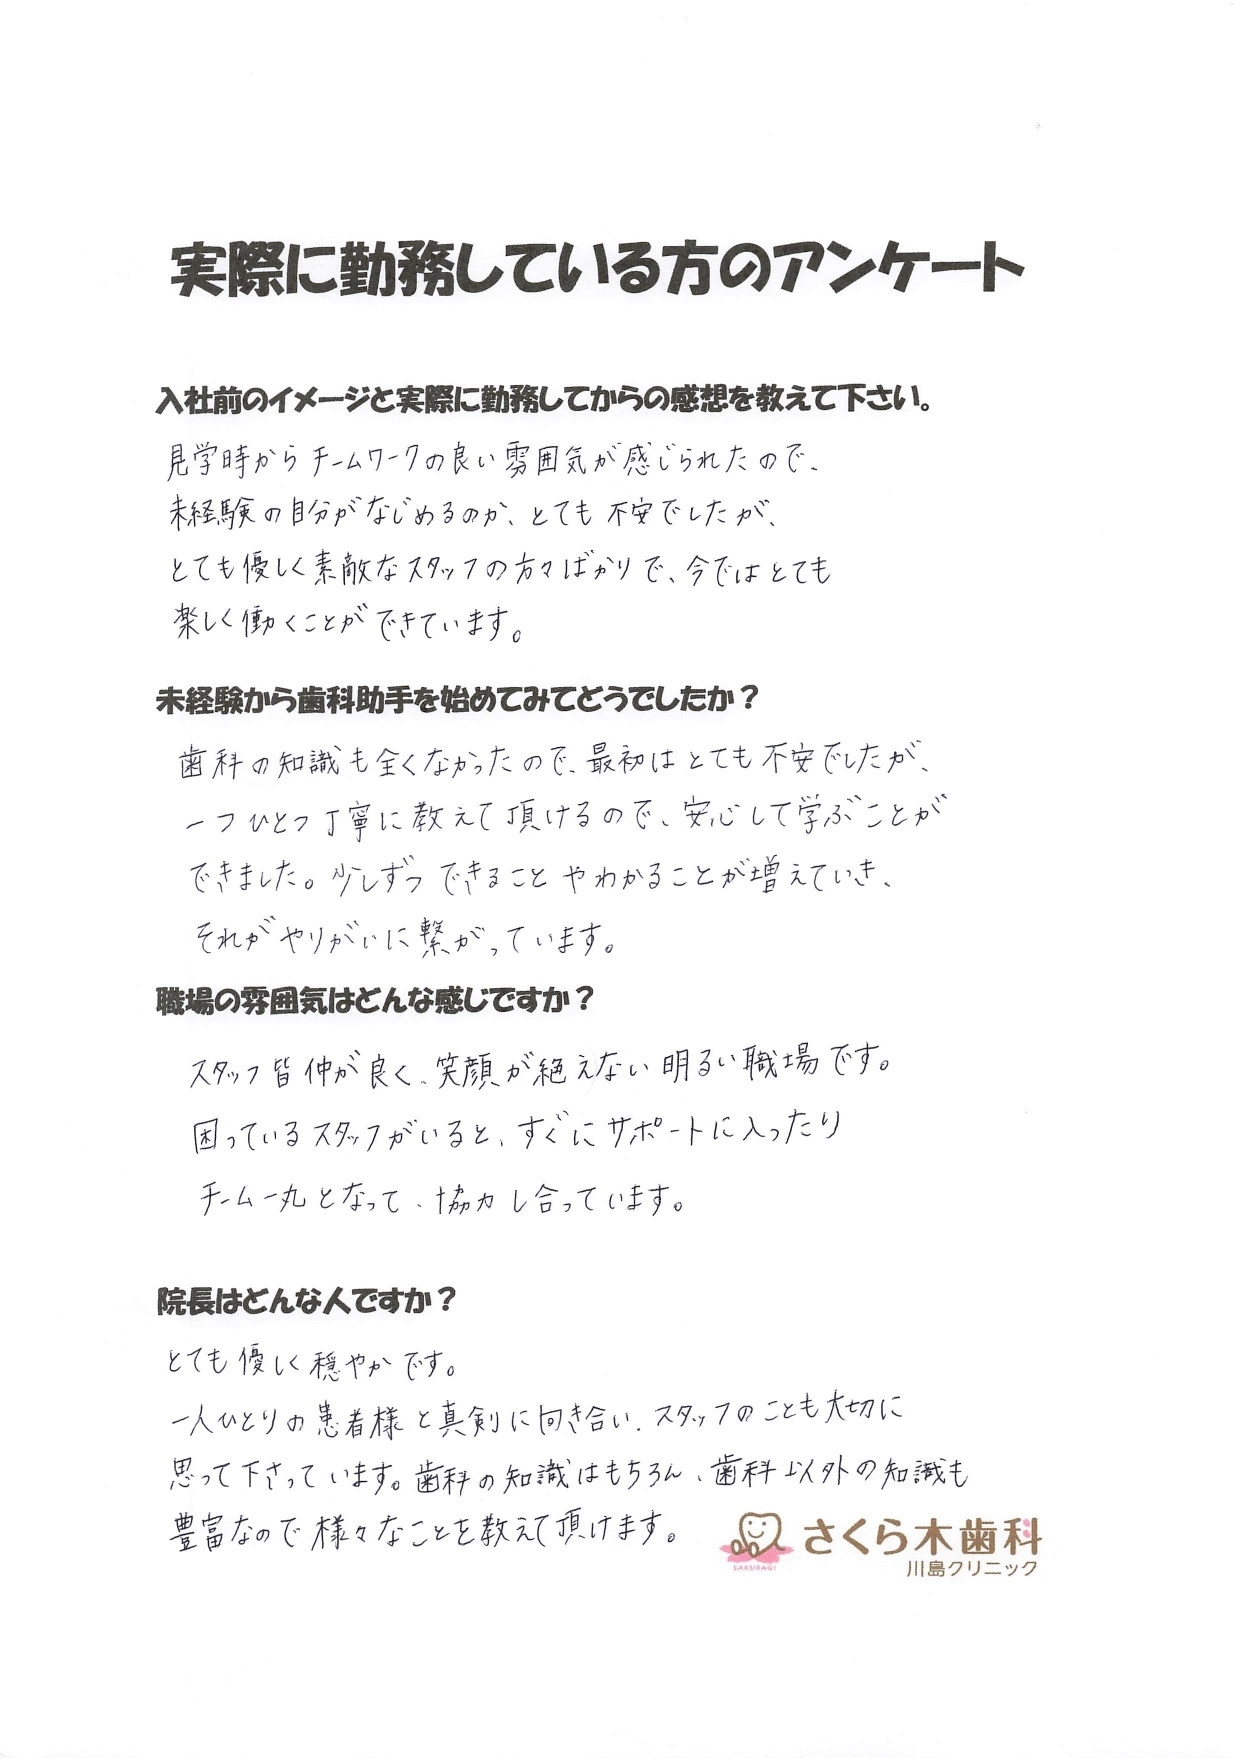 実際に勤務している方のアンケート
入社前のイメージと実際に勤務してからの感想を教えて下さい。
見学時からチームワークの良い雰囲気が感じられたので、
未経験の自分がなじめるのか、とても不安でしたが、
とても優しく素敵なスタッフの方々ばかりで、今ではとても
楽しく働くことができています。
未経験から歯科助手を始めてみてどうでしたか？
歯科の知識も全くなかったので、最初はとても不安でしたが、
一つひとつ丁寧に教えて頂けるので、安心して学ぶことが
できました。少しずつできることやわかることが増えていき、
それがやりがいに繋がっています。
職場の雰囲気はどんな感じですか？
スタッフ皆仲が良く、笑顔が絶えない明るい職場です。
困っているスタッフがいると、すぐにサポートに入ったり
チーム一丸となって、協力し合っています。
院長はどんな人ですか？
とても優しく穏やかです。
一人ひとりの患者様と真剣に向き合い、スタッフのことも大切に
思って下さっています。歯科の知識はもちろん、歯科以外の知識も
豊富なので様々なことを教えて頂けます。
SAKURAGI
さくら木歯科
川島クリニック